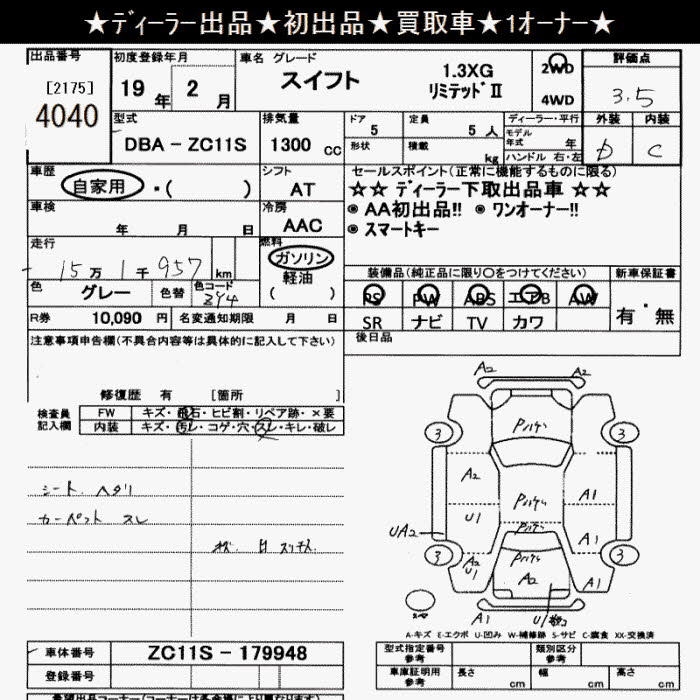 ★ディーラー出品★初出品★買取車★1オーナー★
出品番号 初度登録年月 車名 グレード 評価点
[2175] 19 年 2 月 スイフト 1.3XG リミテッドⅡ 2WD 4WD 3.5
4040
型式 排気量 ドア 定員 ディーラー・平行 外装 内装
DBA － ZC11S 1300 cc 5 5 人 モデル年式 年 D C
形状 積載 kg ハンドル 右・左
車歴 シフト セールスポイント(正常に機能するものに限る)
自家用 ・( ) AT ☆☆ ディーラー下取出品車 ☆☆
車検 冷房 ◉ AA初出品!! ◉ ワンオーナー!!
年 月 日 AAC ◉ スマートキー
走行 燃料
15万 1千 957 km ガソリン 装備品(純正品に限り○をつけてください) 新車保証書
色 色替 色コード 軽油 PS PW ABS エアB AW 有・無
グレー 394 ( ) SR ナビ TV カワ
R券 10,090 円 名変通知期限 月 日 後日品
注意事項申告欄(不具合内容等は具体的に記入して下さい)
修復歴 有 [箇所 ]
検査員記入欄 FW キズ・飛石・ヒビ割・リペア跡・×要
内装 キズ・汚レ・コゲ・穴・スレ・キレ・破レ
シート ヘタリ
カーペット スレ
A2 A2
3 3
A2 A1
U1
UA2 A1
3 3
A2 U1 A2 A1
A1
A-キズ E-エクボ U-凹み W-補修跡 S-サビ C-腐食 XX-交換済
車体番号 ZC11S－179948 型式指定番号 参考 類別区分 参考
登録番号 車庫証明用 参考 長さ cm 幅 cm 高さ cm